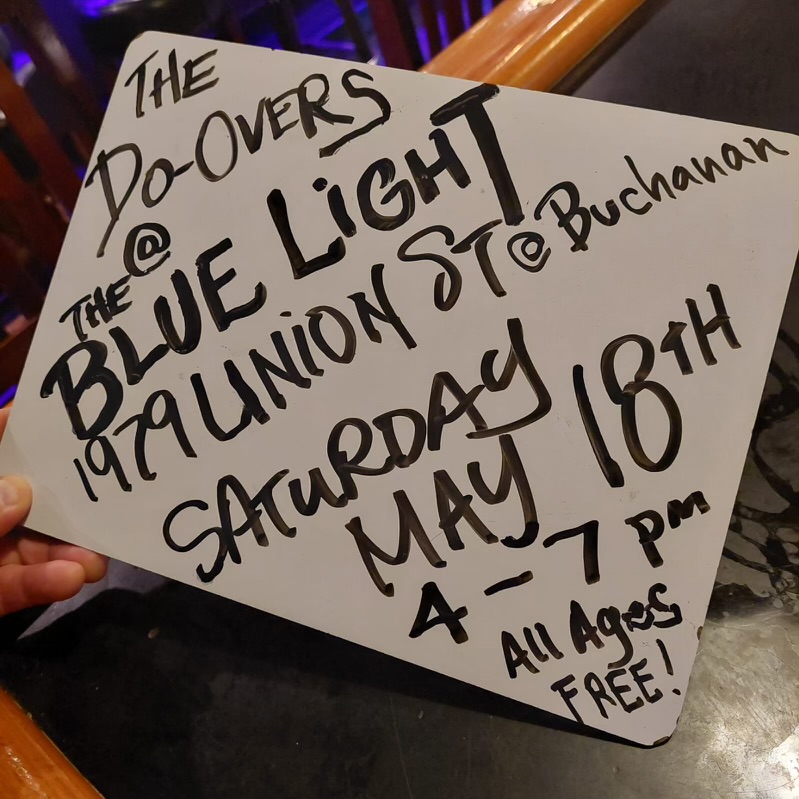 THE
DO-OVERS
@
THE
BLUE LiGHT
1979 UNiON ST @ Buchanan
SATURDAY
MAY 18TH
4-7 pm
All Ages
FREE!